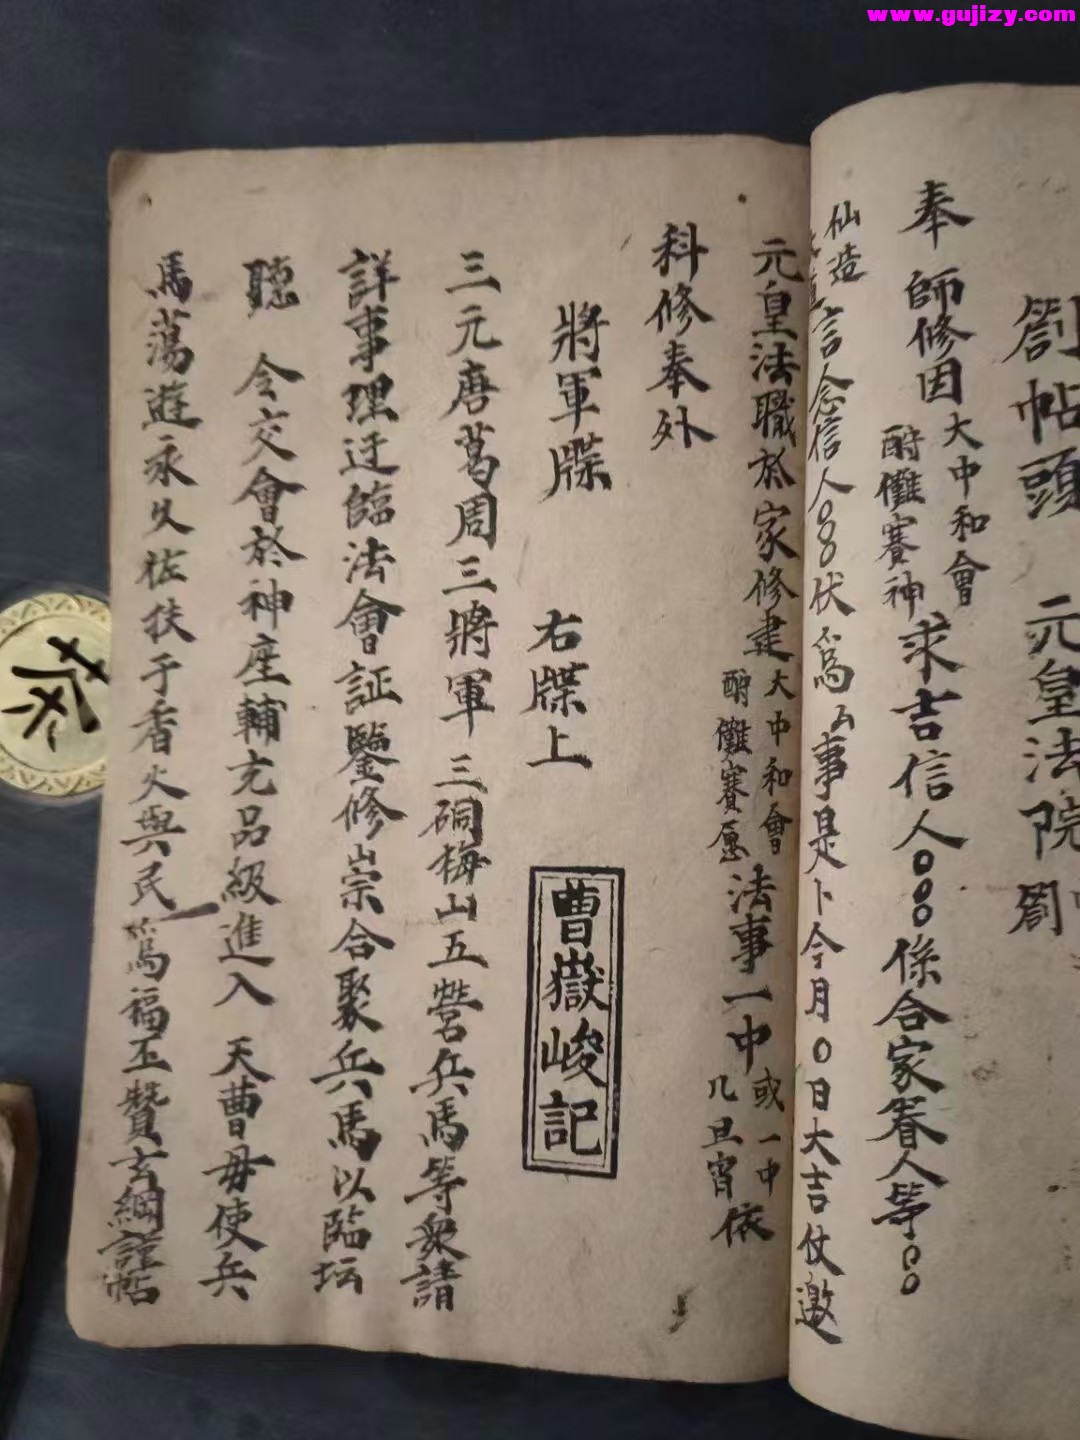 www.gujizy.com
劄帖頭　元皇法院劄
奉　師修因
大中和會
酧儺賽神
求吉信人〇〇〇係合家眷人等〇〇
仙造
言念信人〇〇〇伏為厶事是卜今月〇日大吉仗邀
元皇法職於家修建
大中和會
酧儺賽愿
法事一中
或一中
几旦宵
依
科修奉外
將軍牒　右牒上　曹嶽峻記
三元唐葛周三將軍三硐梅山五營兵馬等衆請
詳事理迂臨法會証鑒修崇合聚兵馬以臨坛
聽　令交會於神座輔充品級進入天曹毋使兵
馬蕩遊永久佐扶于香火與民為福丕贊玄綱謹帖
茶